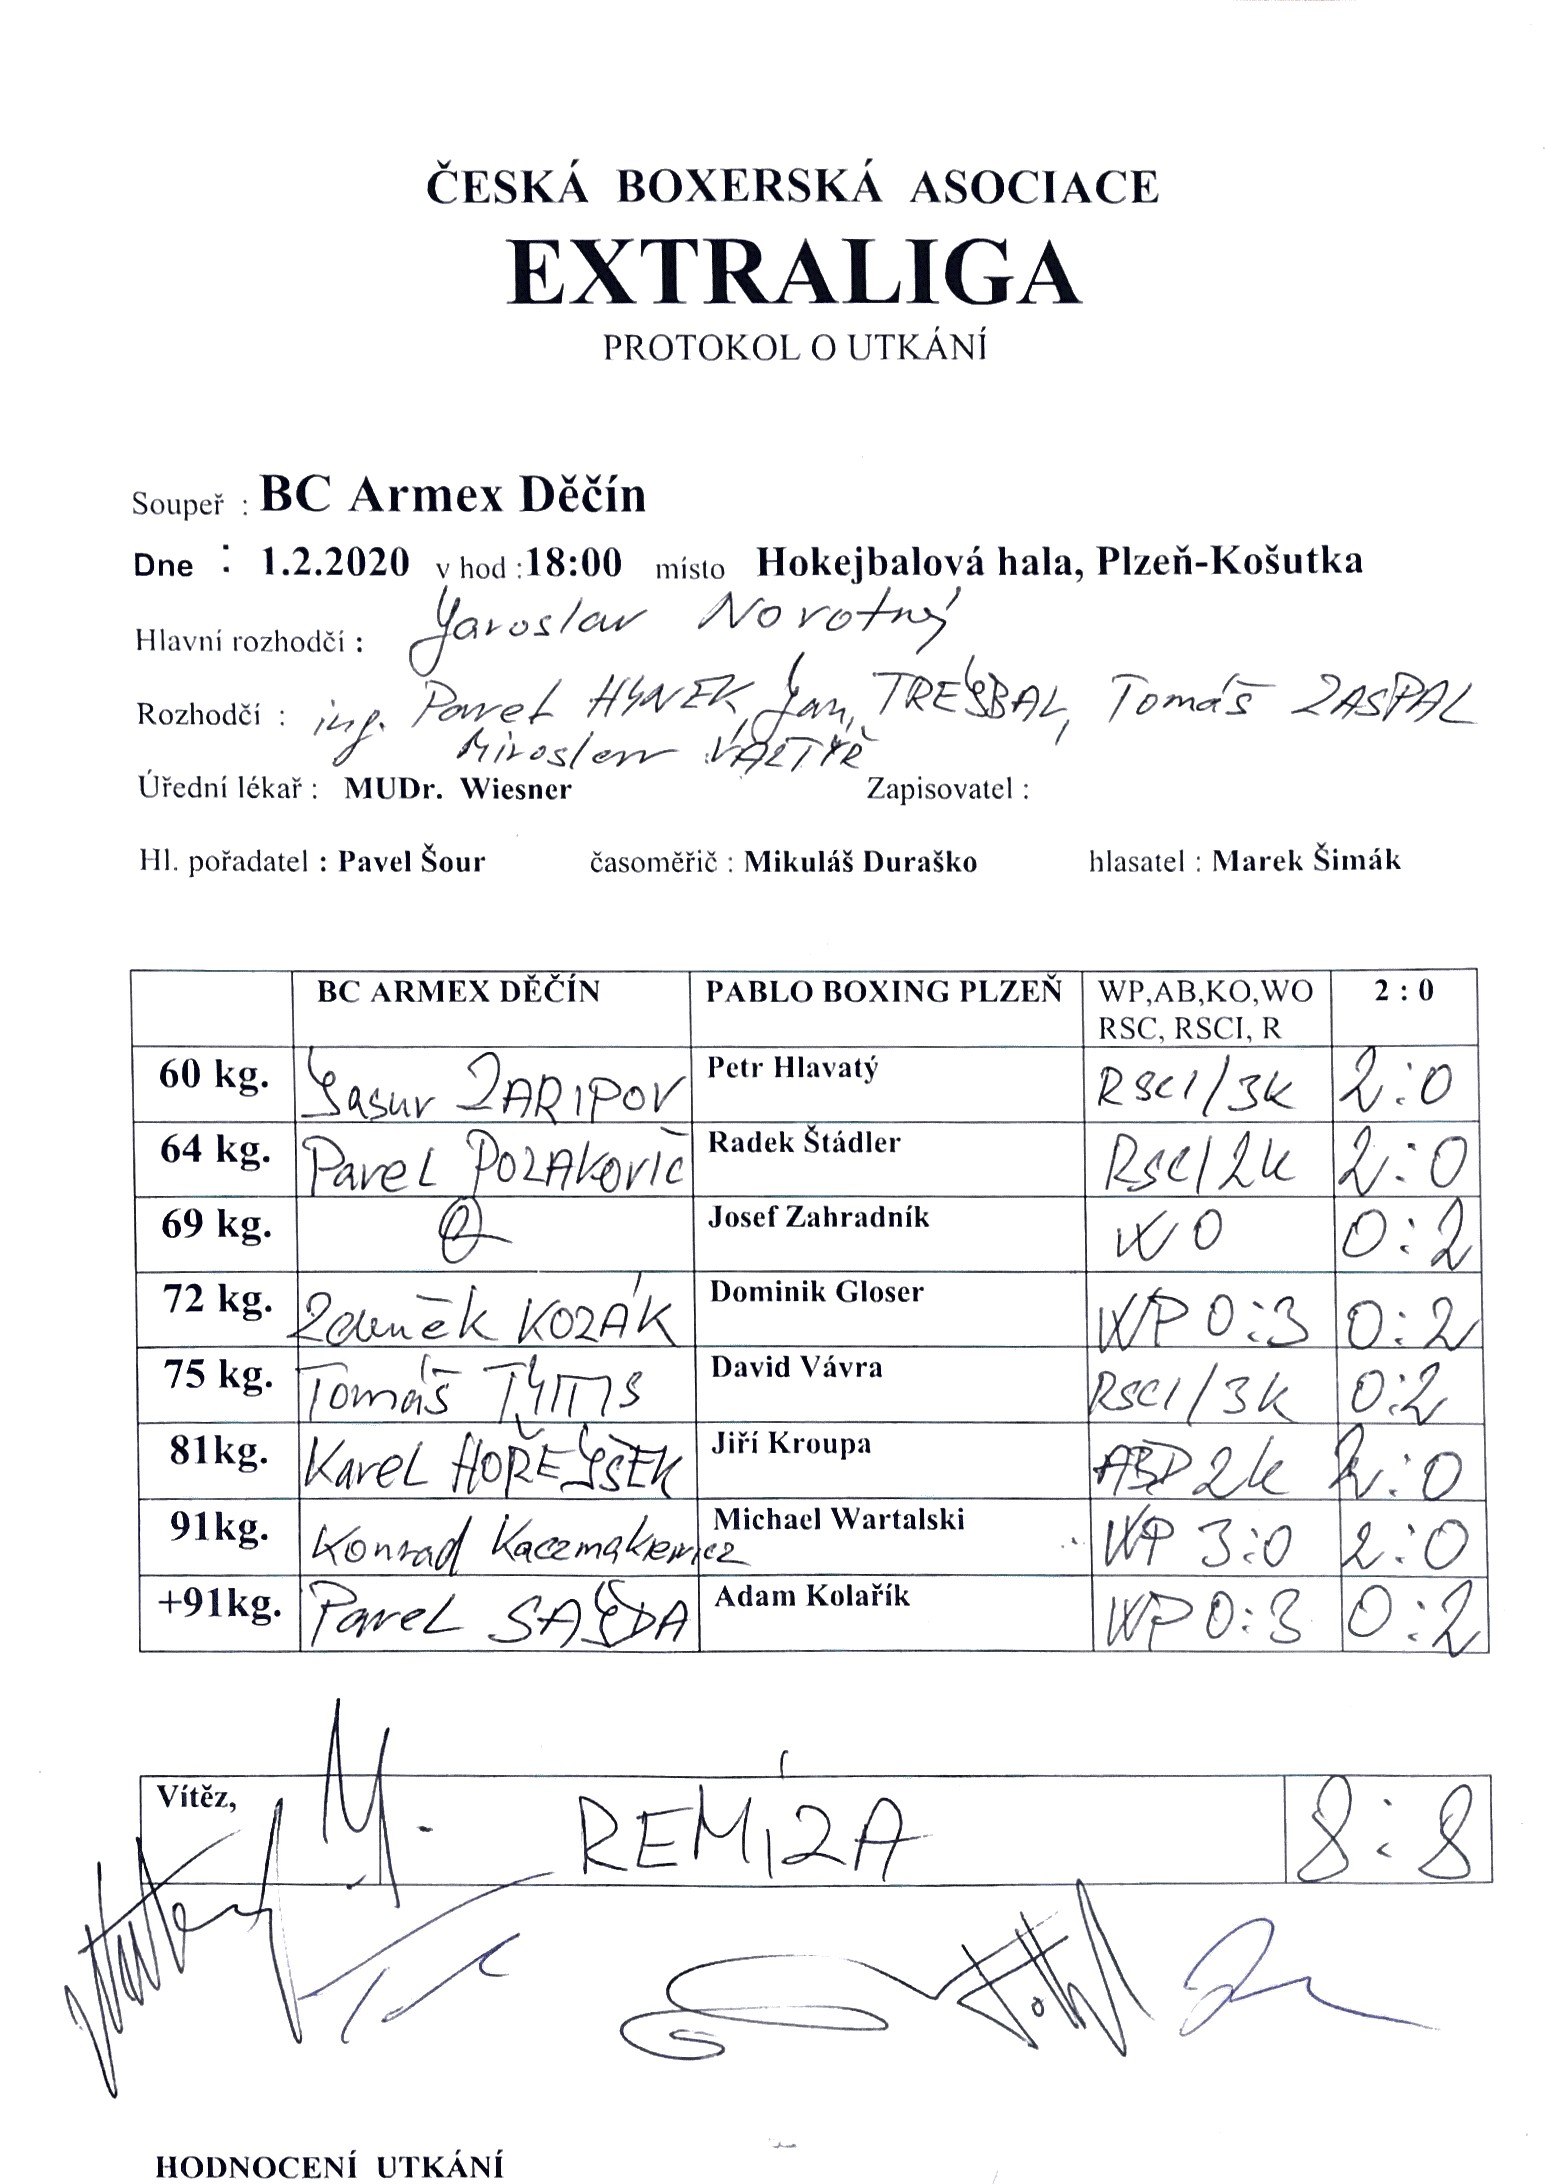 ČESKÁ BOXERSKÁ ASOCIACE
EXTRALIGA
PROTOKOL O UTKÁNÍ
Soupeř : BC Armex Děčín
Dne : 1.2.2020 v hod :18:00 místo Hokejbalová hala, Plzeň-Košutka
Hlavní rozhodčí : Jaroslav Novotný
Rozhodčí : ing. Pavel HYNEK, Jan TREJBAL, Tomáš ZASPAL
Miroslav VALTYŘ
Úřední lékař : MUDr. Wiesner Zapisovatel :
Hl. pořadatel : Pavel Šour časoměřič : Mikuláš Duraško hlasatel : Marek Šimák
BC ARMEX DĚČÍN PABLO BOXING PLZEŇ WP,AB,KO,WO 2 : 0
RSC, RSCI, R
60 kg. Jasur ZARIPOV Petr Hlavatý RSCI/3K 2:0
64 kg. Pavel POZAKovič Radek Štádler RSC/2K 2:0
69 kg. Josef Zahradník WO 0:2
72 kg. Zdeněk KOZÁK Dominik Gloser WP 0:3 0:2
75 kg. Tomáš David Vávra RSCI/3K 0:2
81kg. Karel HOŘEJŠEK Jiří Kroupa ABD 2k 2:0
91kg. Konrad Kaczmakewicz Michael Wartalski WP 3:0 2:0
+91kg. Pavel SAJDA Adam Kolařík WP 0:3 0:2
Vítěz, REMÍZA 8:8
HODNOCENÍ UTKÁNÍ